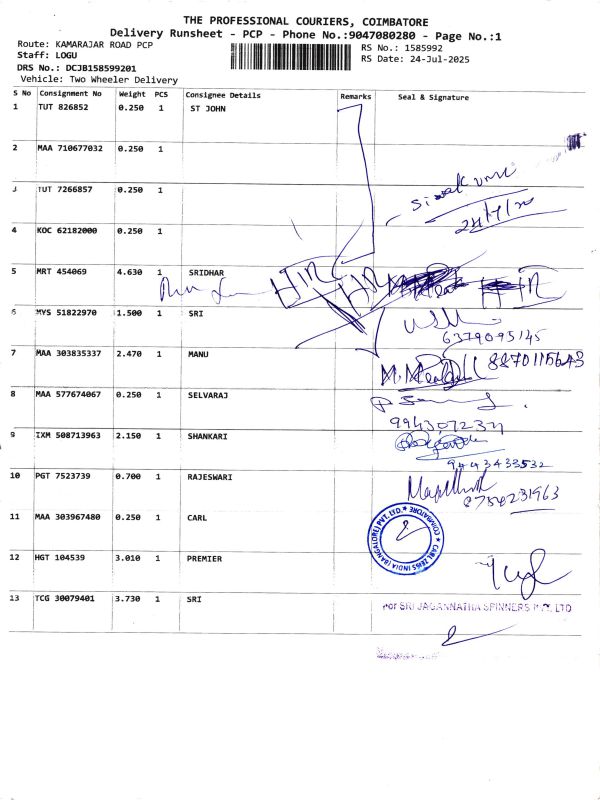 THE PROFESSIONAL COURIERS, COIMBATORE
Delivery Runsheet - PCP - Phone No.:9047080280 - Page No.:1
Route: KAMARAJAR ROAD PCP
Staff: LOGU
DRS No.: DCJB158599201
Vehicle: Two Wheeler Delivery
RS No.: 1585992
RS Date: 24-Jul-2025
S No Consignment No Weight PCS Consignee Details Remarks Seal & Signature
1 TUT 826852 0.250 1 ST JOHN
2 MAA 710677032 0.250 1
3 TUT 7266857 0.250 1
4 KOC 62182000 0.250 1
5 MRT 454069 4.630 1 SRIDHAR
6 MYS 51822970 1.500 1 SRI
6379095145
7 MAA 303835337 2.470 1 MANU
8870115643
8 MAA 577674067 0.250 1 SELVARAJ
9 IXM 508713963 2.150 1 SHANKARI
9443433532
10 PGT 7523739 0.700 1 RAJESWARI
8750231963
11 MAA 303967480 0.250 1 CARL
CARL ZEISS INDIA (BANGALORE) PVT. LTD. ★ COIMBATORE ★
12 HGT 104539 3.010 1 PREMIER
13 TCG 30079401 3.730 1 SRI
For SRI JAGANNATHA SPINNERS PVT. LTD